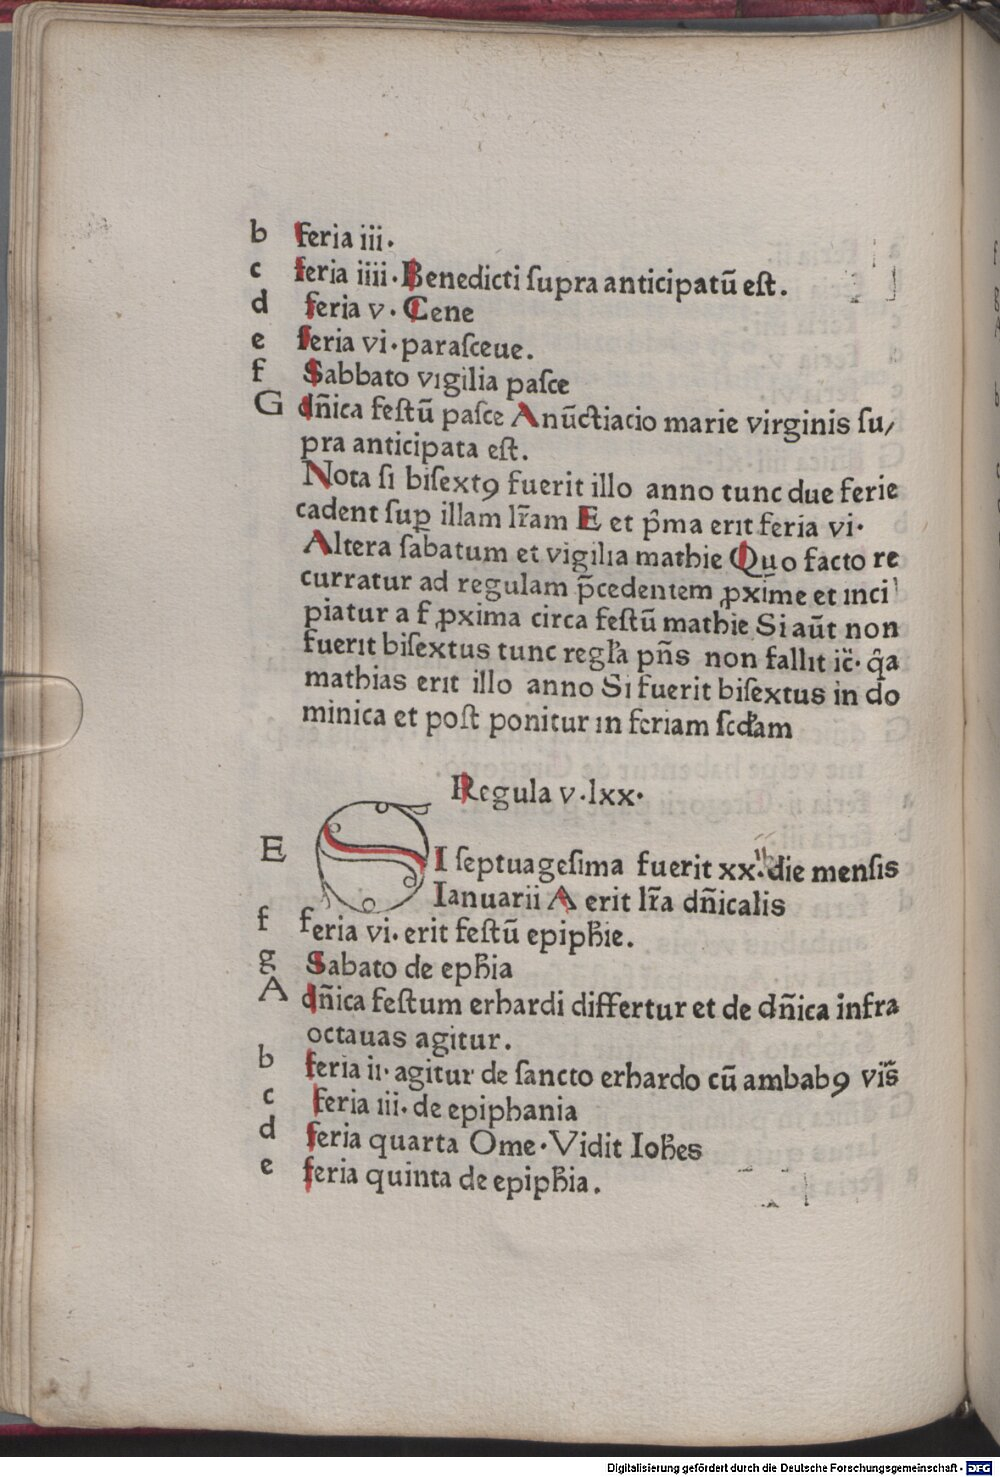 b feria iii·
c feria iiii·Benedicti ſupra anticipatū eſt.
d feria v·Cene
e feria vi·paraſceue.
f Sabbato vigilia paſce
G dñica feſtū paſce Anūctiacio marie virginis ſu/
pra anticipata eſt.
Nota ſi biſextꝯ fuerit illo anno tunc due ferie
cadent ſuꝑ illam lr̃am E et p̃ma erit feria vi·
Altera ſabatum et vigilia mathie Quo facto re
curratur ad regulam p̃cedentem ꝓxime et inci
piatur a f ꝓxima circa feſtū mathie Si aūt non
fuerit biſextus tunc regl̃a pñs non fallit ic̃· q̃a
mathias erit illo anno Si fuerit biſextus in do
minica et poſt ponitur in feriam ſcd̃am
Regula v·lxx·
E SI ſeptuageſima fuerit xx· die menſis
Ianuarii A erit lr̃a dñicalis
f feria vi·erit feſtū epiph̃ie.
g Sabato de eph̃ia
A dñica feſtum erhardi differtur et de dñica infra
octauas agitur.
b feria ii·agitur de ſancto erhardo cū ambabꝯ vis̃
c feria iii·de epiphania
d feria quarta Ome·Vidit Ioh̃es
e feria quinta de epiph̃ia.
Digitalisierung gefördert durch die Deutsche Forschungsgemeinschaft - DFG